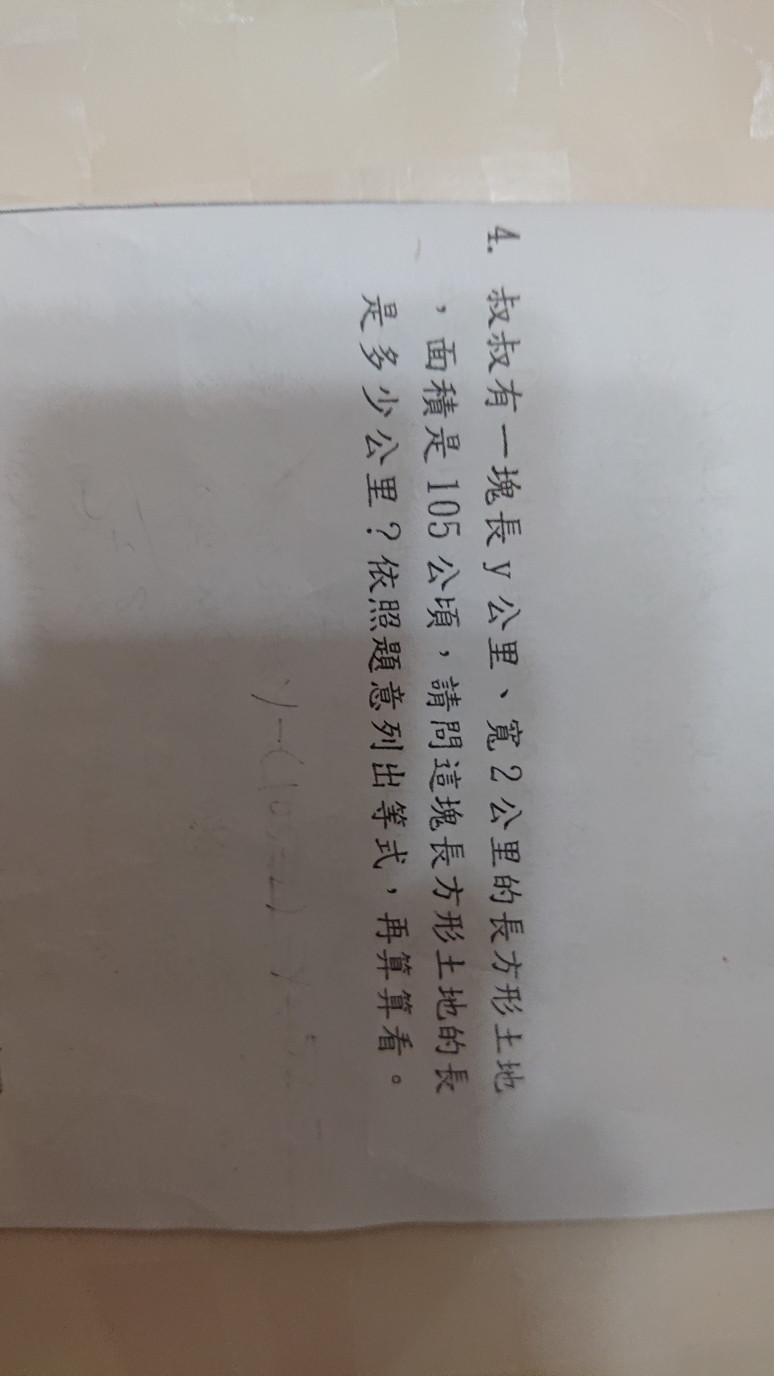 4. 叔叔有一塊長y公里、寬2公里的長方形土地
，面積是105公頃，請問這塊長方形土地的長
是多少公里？依照題意列出等式，再算算看。